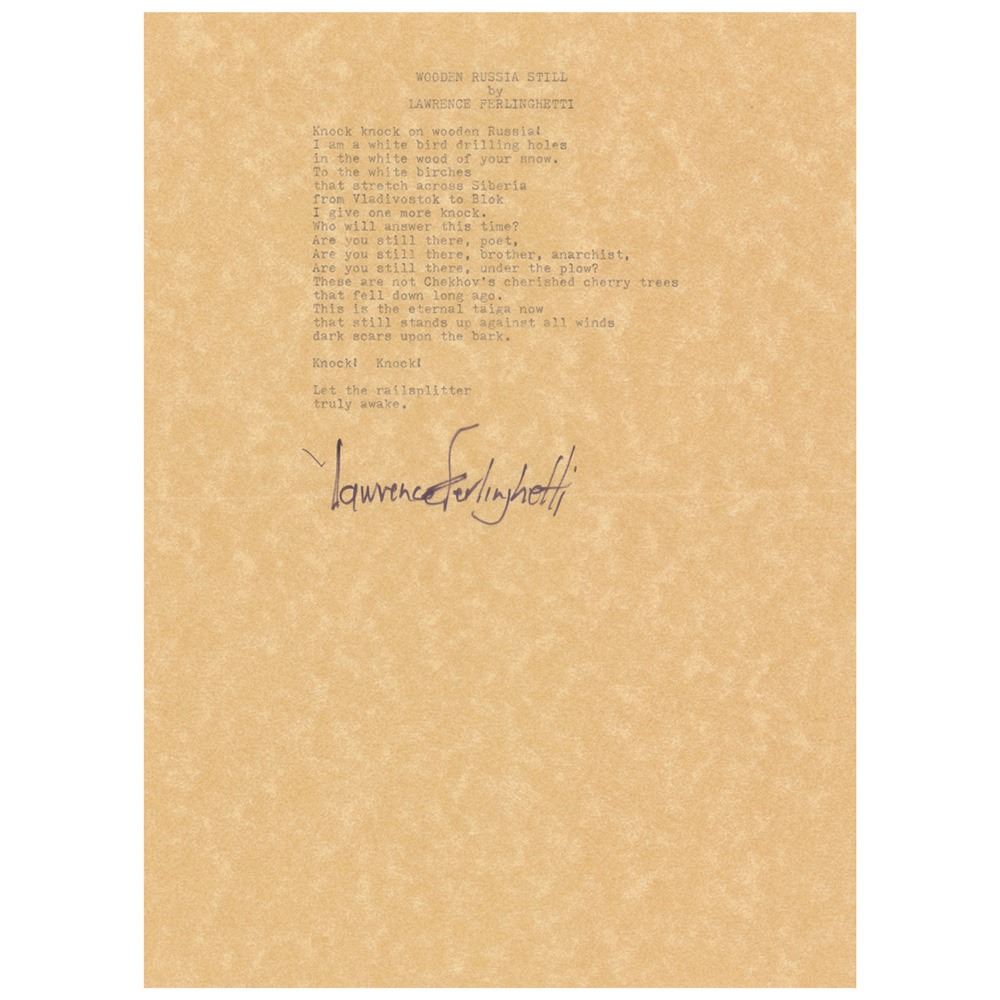 WOODEN RUSSIA STILL
by
LAWRENCE FERLINGHETTI
Knock knock on wooden Russia!
I am a white bird drilling holes
in the white wood of your snow.
To the white birches
that stretch across Siberia
from Vladivostok to Blok
I give one more knock.
Who will answer this time?
Are you still there, poet,
Are you still there, brother, anarchist,
Are you still there, under the plow?
These are not Chekhov's cherished cherry trees
that fell down long ago.
This is the eternal taiga now
that still stands up against all winds
dark scars upon the bark.
Knock!  Knock!
Let the railsplitter
truly awake.
Lawrence Ferlinghetti